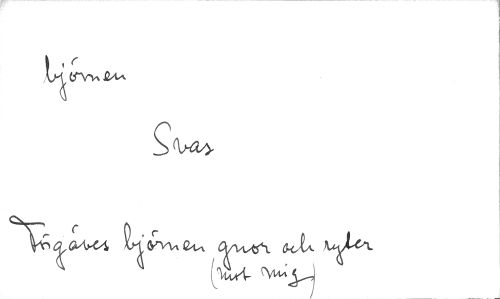 björnen
Svas
Förgäves björnen gnor och ryter
(mot mig)